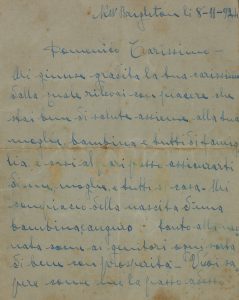 New Brighton li 8-11-924
Domenico Carissimo -
Mi giunse gradita la tua carissima
dalla quale rilevai con piacere che
stai bene di salute assieme alla tua
moglie, bambina e tutti di fami
glia e così al pari posso assicurarti
di me, moglie e tutti i casa. Mi
compiaccio della nascita d'una
bambina, auguro tanto alla neo
nata come ai genitori ogni sorta
di bene con prosperità - Vuoi sa
pere come me la passo